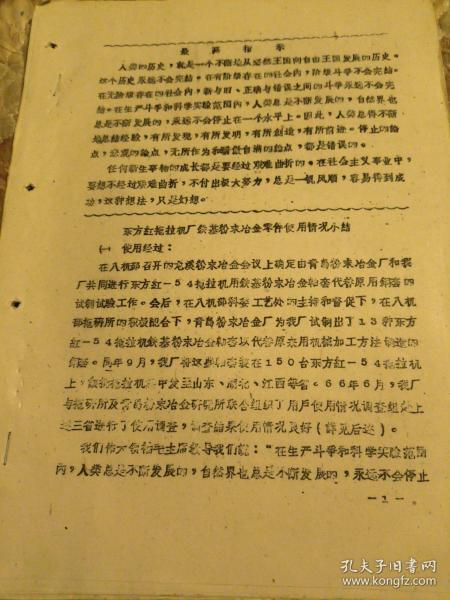 最高指示
人类的历史，就是一个不断地从必然王国向自由王国发展的历史。
这个历史永远不会完结。在有阶级存在的社会内，阶级斗争不会完结。
在无阶级存在的社会内，新与旧、正确与错误之间的斗争永远不会完
结。在生产斗争和科学实验范围内，人类总是不断发展的，自然界也
总是不断发展的，永远不会停止在一个水平上。因此，人类总得不断
地总结经验，有所发现，有所发明，有所创造，有所前进。停止的论
点，悲观的论点，无所作为和骄傲自满的论点，都是错误的。
任何新生事物的成长都是要经过艰难曲折的。在社会主义事业中，
要想不经过艰难曲折，不付出极大努力，总是一帆风顺，容易得到成
功，这种想法，只是幻想。
东方红拖拉机厂铁基粉末冶金零件使用情况小结
㈠ 使用经过：
在八机部召开的 粉末冶金会议上确定由青岛粉末冶金厂和我
厂共同进行东方红—54拖拉机用铁基粉末冶金和套代替原用铜套的
试制试验工作。会后，在八机部科委工艺处的主持和督促下，在八机
部拖研所的积极配合下，青岛粉末冶金厂为我厂试制出了13种东方
红—54拖拉机铁基粉末冶金和套以代替原来用机械加工方法制造的
铜套。同年9月，我厂将这些和套装在150台东方红—54拖拉机
上， 拖拉机 中发至山东、湖北、江西等省。66年6月，我厂
与拖研所及青岛粉末冶金研究所联合组织了用户使用情况调查组赴上
述三省进行了使用调查，调查结果使用情况良好（详见后述）。
我们伟大领袖毛主席教导我们说：“在生产斗争和科学实验范围
内，人类总是不断发展的，自然界也总是不断发展的，永远不会停止
—1—
孔夫子旧书网
www.kongfz.com